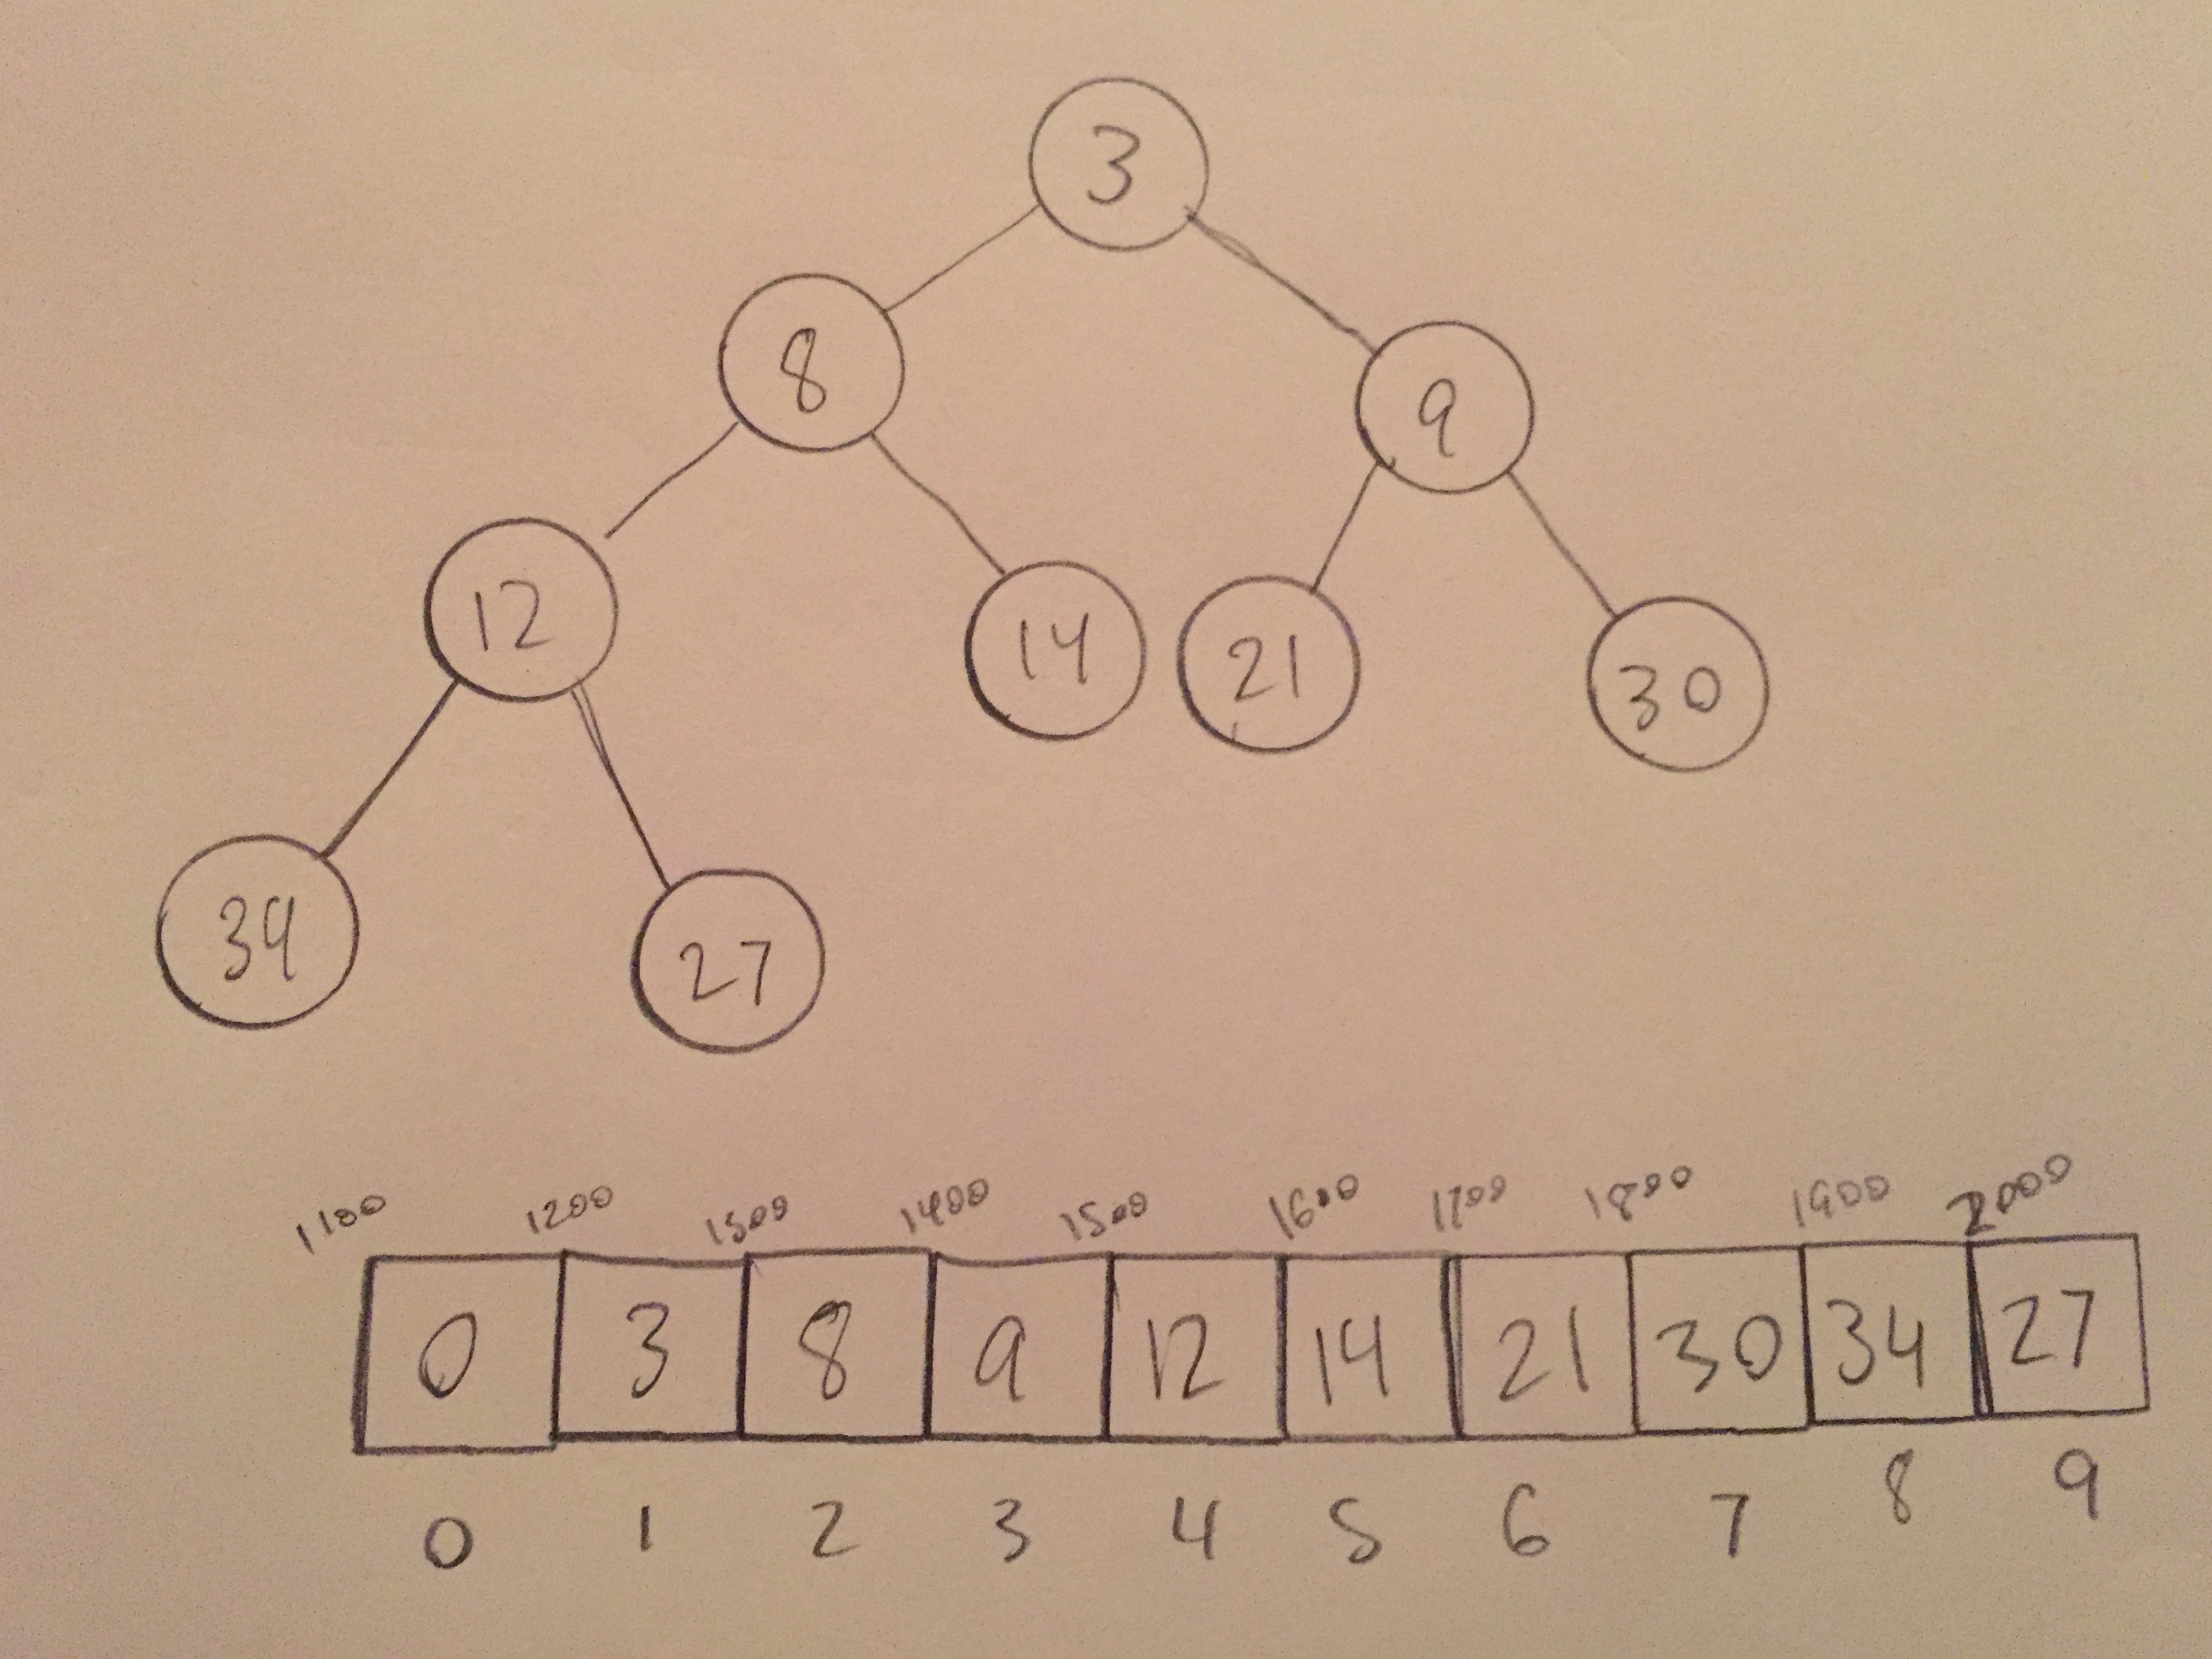 3
8
9
12
14
21
30
34
27
1100 1200 1500 1400 1500 1600 1700 1800 1900 2000
0 3 8 9 12 14 21 30 34 27
0 1 2 3 4 5 6 7 8 9